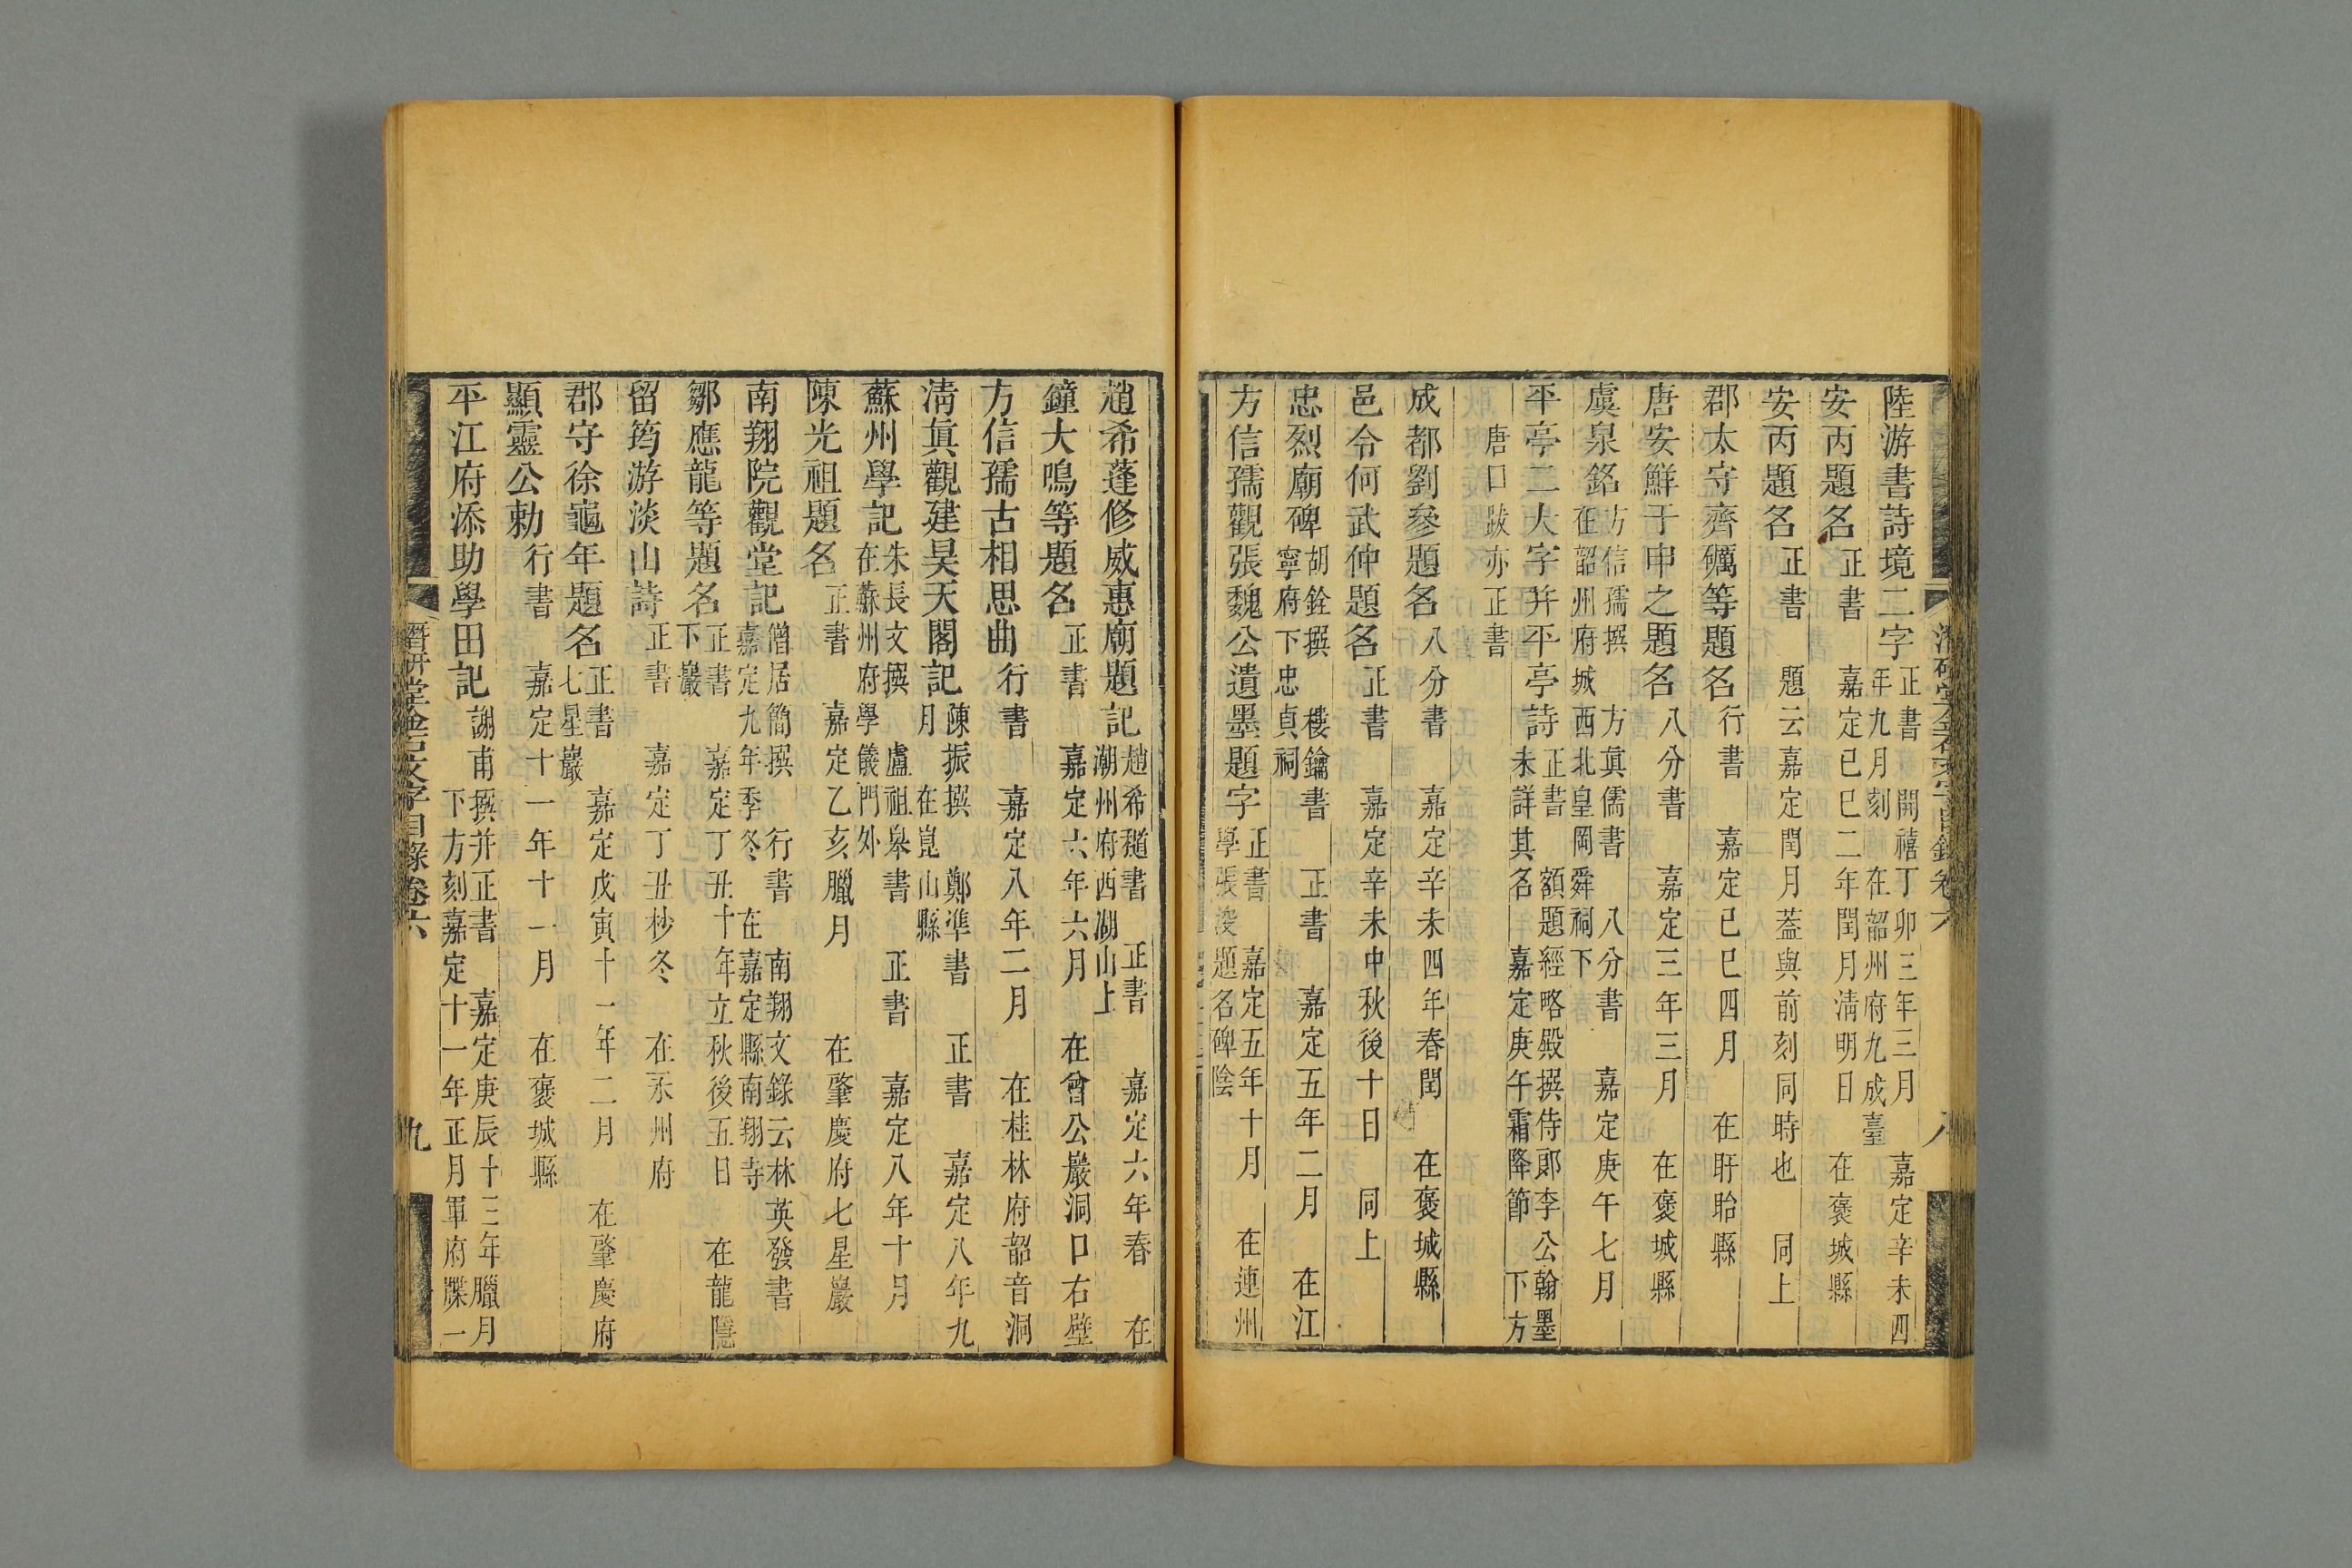 陸游書詩境二字 正書 開禧丁卯三年三月 嘉定辛未四年九月刻 在韶州府九成臺
安丙題名 正書 嘉定己巳二年閏月淸明日 在褒城縣
安丙題名 正書 題云嘉定閏月蓋與前刻同時也 同上
郡太守齊礪等題名 行書 嘉定己巳四月 在盱眙縣
唐安鮮于申之題名 八分書 嘉定三年三月 在褒城縣
虞泉銘 方信孺撰 方眞儒書 八分書 嘉定庚午七月 在韶州府城西北皇岡舜祠下
平亭二大字幷平亭詩 正書 額題經略殿撰侍郞李公翰墨 未詳其名 嘉定庚午霜降節 下方
唐口跋亦正書
成都劉參題名 八分書 嘉定辛未四年春閏 在褒城縣
邑令何武仲題名 正書 嘉定辛未中秋後十日 同上
忠烈廟碑 胡銓撰 樓鑰書 正書 嘉定五年二月 在江寧府下忠貞祠
方信孺觀張魏公遺墨題字 正書 嘉定五年十月 在連州學張浚題名碑陰
潛研堂金石文字目錄卷六 八
趙希蓬修威惠廟題記 趙希𥡆書 正書 嘉定六年春 在潮州府西湖山上
鐘大鳴等題名 正書 嘉定六年六月 在曾公巖洞口右壁
方信孺古相思曲 行書 嘉定八年二月 在桂林府韶音洞
淸眞觀建昊天閣記 陳振撰 鄭準書 正書 嘉定八年九月 在崑山縣
蘇州學記 朱長文撰 盧祖皋書 正書 嘉定八年十月 在蘇州府學儀門外
陳光祖題名 正書 嘉定乙亥臘月 在肇慶府七星巖
南翔院觀堂記 僧居簡撰 行書 南翔文錄云林英發書 嘉定九年季冬 在嘉定縣南翔寺
鄒應龍等題名 正書 嘉定丁丑十年立秋後五日 在龍隱下巖
留筠游淡山詩 正書 嘉定丁丑杪冬 在永州府
郡守徐龜年題名 正書 嘉定戊寅十一年二月 在肇慶府七星巖
顯靈公勅 行書 嘉定十一年十一月 在褒城縣
平江府添助學田記 謝甫撰幷正書 嘉定庚辰十三年臘月 下方刻嘉定十一年正月軍府牒一
潛研堂金石文字目錄卷六 九